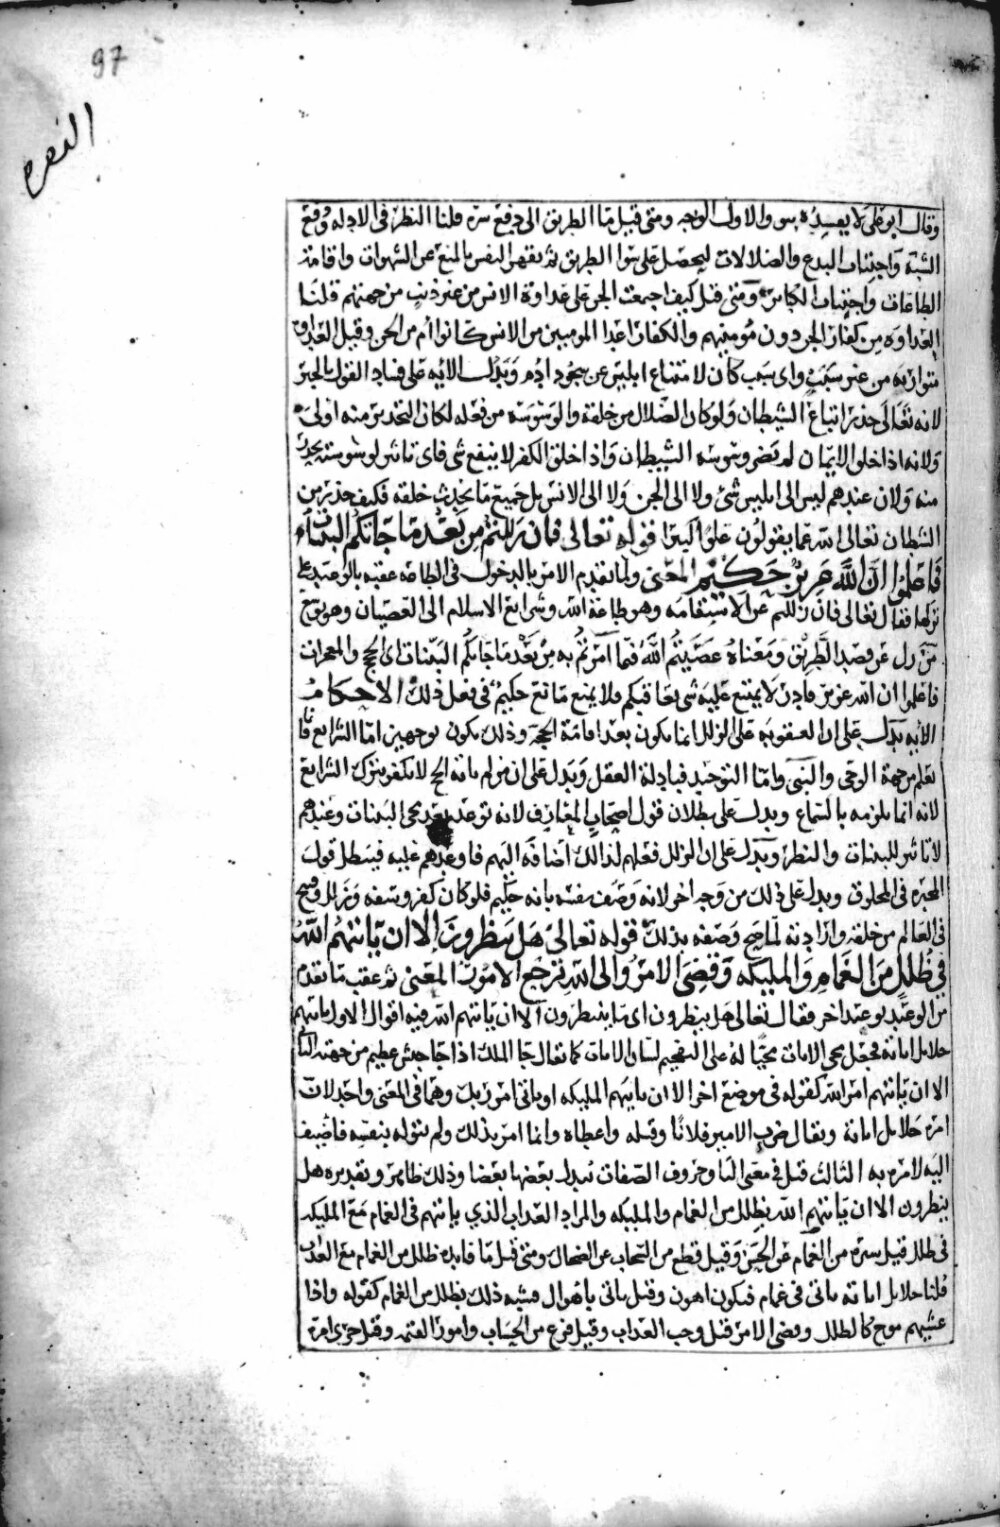 97
البقرة
وقال ابو على لا يعيده بس والاول الوجه ومتى قيل ما الطريق الى دفع شره قلنا النظر فى الادله ودفع
الشبه واجتناب البدع والضلالات ليحصل على سوا الطريق ثم يقهر النفس بالمنع عن الشهوات واقامة
الطاعات واجتناب الكبائر ومتى قيل كيف اجمعت الجن على عداوة الانس من غير ذنب من جهتهم قلنا
العداوه من كفار الجن دون مومنيهم والكفار اعدا المومنين من الانس كانوا أم من الجن وقيل العداوه
متوارثه من غير سبب واى سبب كان لامتناع ابليس عن سجود ادم وتدل الايه على فساد القول بالجبر
لانه تعالى حذر اتباع الشيطان ولو كان الضلال من خلقه والوسوسه من فعله لكان التحذير منه اولى
ولانه اذا خلق الايمان لم تضر وسوسه الشيطان واذا خلق الكفر لا ينفع شى فاى تاثير لوسوسته يحذر
منه ولان عندهم ليس الى ابليس شئ ولا الى الجن ولا الى الانس بل جميع ما يحدث خلقه فكيف حذر من
الشطان تعالى الله عما يقولون علوا كبيرا قوله تعالى فان زللتم من بعد ما جاتكم البينات
فاعلموا ان الله عزيز حكيم المعنى ولما تقدم الامر بالدخول فى الطاعه عقبه بالوعيد على
تركها فقال تعالى فان زللتم عن الاستقامه وهو طاعة الله وشرايع الاسلام الى العصيان وهو توسع
من زل عن قصد الطريق ومعناه عصيتم الله فيما امرتم به من بعد ما جاتكم البينات اى الحجج والمعجزات
فاعلموا ان الله عزيز قادر لا يمتنع عليه شى يعاقبكم فلا يمنع مانع حكيم فى فعل ذلك الاحكام
الايه تدل على ان العقوبه على الزلل انما يكون بعد اقامة الحجه وذلك يكون بوجهين اما الشرايع فانما
تعلم من جهة الوحى والنبى واما التوحيد فبادلة العقل وتدل على ان من لم ياته الحج لا يكفر بترك الشرايع
لانه انما يلزمه بالسماع ويدل على بطلان قول اصحاب المعارف لانه توعد بعد مجى البينات وعندهم
لا تاثير للبينات والنظر ويدل على ان الزلل فعلهم لذلك اضافه اليهم فاوعدهم عليه فيبطل قول
المجبره فى المخلوق ويدل على ذلك من وجه اخر لانه وصف نفسه بانه حكيم فلو كان كفر وسفه وزلل وقبيح
فى العالم من خلقه وارادته لما صح وصفه بذلك قوله تعالى هل ينظرون الا ان ياتيهم الله
فى ظلل من الغمام والمليكه وقضى الامر والى الله ترجع الامور المعنى ثم عقب ما تقدم
من الوعيد بوعيد اخر فقال تعالى هل ينظرون اى ما ينتظرون الا ان ياتيهم الله فيه اقوال الاول ياتيهم
جلايل اياته فجعل مجى الايات مجيا له على التفخيم لشان الايات كما يقال جا الملك اذا جا جيش عظيم من جهته الثانى
الا ان ياتيهم امر الله كقوله فى موضع اخر الا ان ياتيهم المليكه او ياتى امر ربك وهما فى المعنى واحد لان
امره جلايل اياته ويقال ضرب الامير فلانا وقتله واعطاه وانما امر بذلك ولم يتوله بنفسه فاضيف
اليه لامره به الثالث قيل فى معنى البا وحروف الصفات تبدل بعضها بعضا وذلك ظاهر وتقديره هل
ينظرون الا ان ياتيهم الله بظلل من الغمام والمليكه والمراد العذاب الذي ياتيهم فى الغمام مع المليكه
فى ظلل قيل ستره من الغمام عن الحسن وقيل قطع من السحاب عن الضحاك ومتى قيل ما فايده ظلل من الغمام مع العذاب
قلنا جلايل اياته ياتى فى غمام فيكون اهون وقيل ياتى باهوال مشبه ذلك بظلل من الغمام كقوله واذا
غشيهم موج كالظلل وقضى الامر قيل وجب العذاب وقيل فرغ من الحساب وامور القيمه وقيل جزى امره